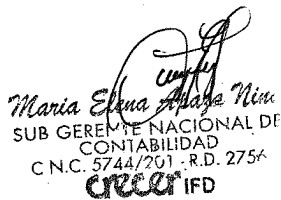 Maria Elena Apaza Nin
SUB GERENTE NACIONAL DE
CONTABILIDAD
C N.C. 5744/201 - R.D. 275
crecer IFD